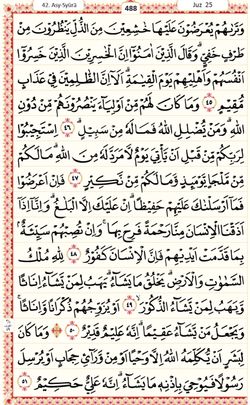 42. Asy-Syūrā
488
Juz 25
وَتَرٰىهُمْ يُعْرَضُوْنَ عَلَيْهَا خٰشِعِيْنَ مِنَ الذُّلِّ يَنْظُرُوْنَ مِنْ
طَرْفٍ خَفِيٍّۗ وَقَالَ الَّذِيْنَ اٰمَنُوْٓا اِنَّ الْخٰسِرِيْنَ الَّذِيْنَ خَسِرُوْٓا
اَنْفُسَهُمْ وَاَهْلِيْهِمْ يَوْمَ الْقِيٰمَةِۗ اَلَآ اِنَّ الظّٰلِمِيْنَ فِيْ عَذَابٍ
مُّقِيْمٍ ٤٥ وَمَا كَانَ لَهُمْ مِّنْ اَوْلِيَاۤءَ يَنْصُرُوْنَهُمْ مِّنْ دُوْنِ
اللّٰهِۗ وَمَنْ يُّضْلِلِ اللّٰهُ فَمَا لَهٗ مِنْ سَبِيْلٍۗ ٤٦ اِسْتَجِيْبُوْا
لِرَبِّكُمْ مِّنْ قَبْلِ اَنْ يَّأْتِيَ يَوْمٌ لَّا مَرَدَّ لَهٗ مِنَ اللّٰهِۗ مَا لَكُمْ
مِّنْ مَّلْجَاٍ يَّوْمَىِٕذٍ وَّمَا لَكُمْ مِّنْ نَّكِيْرٍ ٤٧ فَاِنْ اَعْرَضُوْا
فَمَآ اَرْسَلْنٰكَ عَلَيْهِمْ حَفِيْظًاۗ اِنْ عَلَيْكَ اِلَّا الْبَلٰغُۗ وَاِنَّآ اِذَآ
اَذَقْنَا الْاِنْسَانَ مِنَّا رَحْمَةً فَرِحَ بِهَاۚ وَاِنْ تُصِبْهُمْ سَيِّئَةٌ ۢ
بِمَا قَدَّمَتْ اَيْدِيْهِمْ فَاِنَّ الْاِنْسَانَ كَفُوْرٌ ٤٨ لِلّٰهِ مُلْكُ
السَّمٰوٰتِ وَالْاَرْضِۗ يَخْلُقُ مَا يَشَاۤءُۗ يَهَبُ لِمَنْ يَّشَاۤءُ اِنَاثًا
وَّيَهَبُ لِمَنْ يَّشَاۤءُ الذُّكُوْرَۙ ٤٩ اَوْ يُزَوِّجُهُمْ ذُكْرَانًا وَّاِنَاثًاۚ
وَيَجْعَلُ مَنْ يَّشَاۤءُ عَقِيْمًاۗ اِنَّهٗ عَلِيْمٌ قَدِيْرٌ ٥٠ وَمَا كَانَ
لِبَشَرٍ اَنْ يُّكَلِّمَهُ اللّٰهُ اِلَّا وَحْيًا اَوْ مِنْ وَّرَاۤئِ حِجَابٍ اَوْ يُرْسِلَ
رَسُوْلًا فَيُوْحِيَ بِاِذْنِهٖ مَا يَشَاۤءُۗ اِنَّهٗ عَلِيٌّ حَكِيْمٌ ٥١